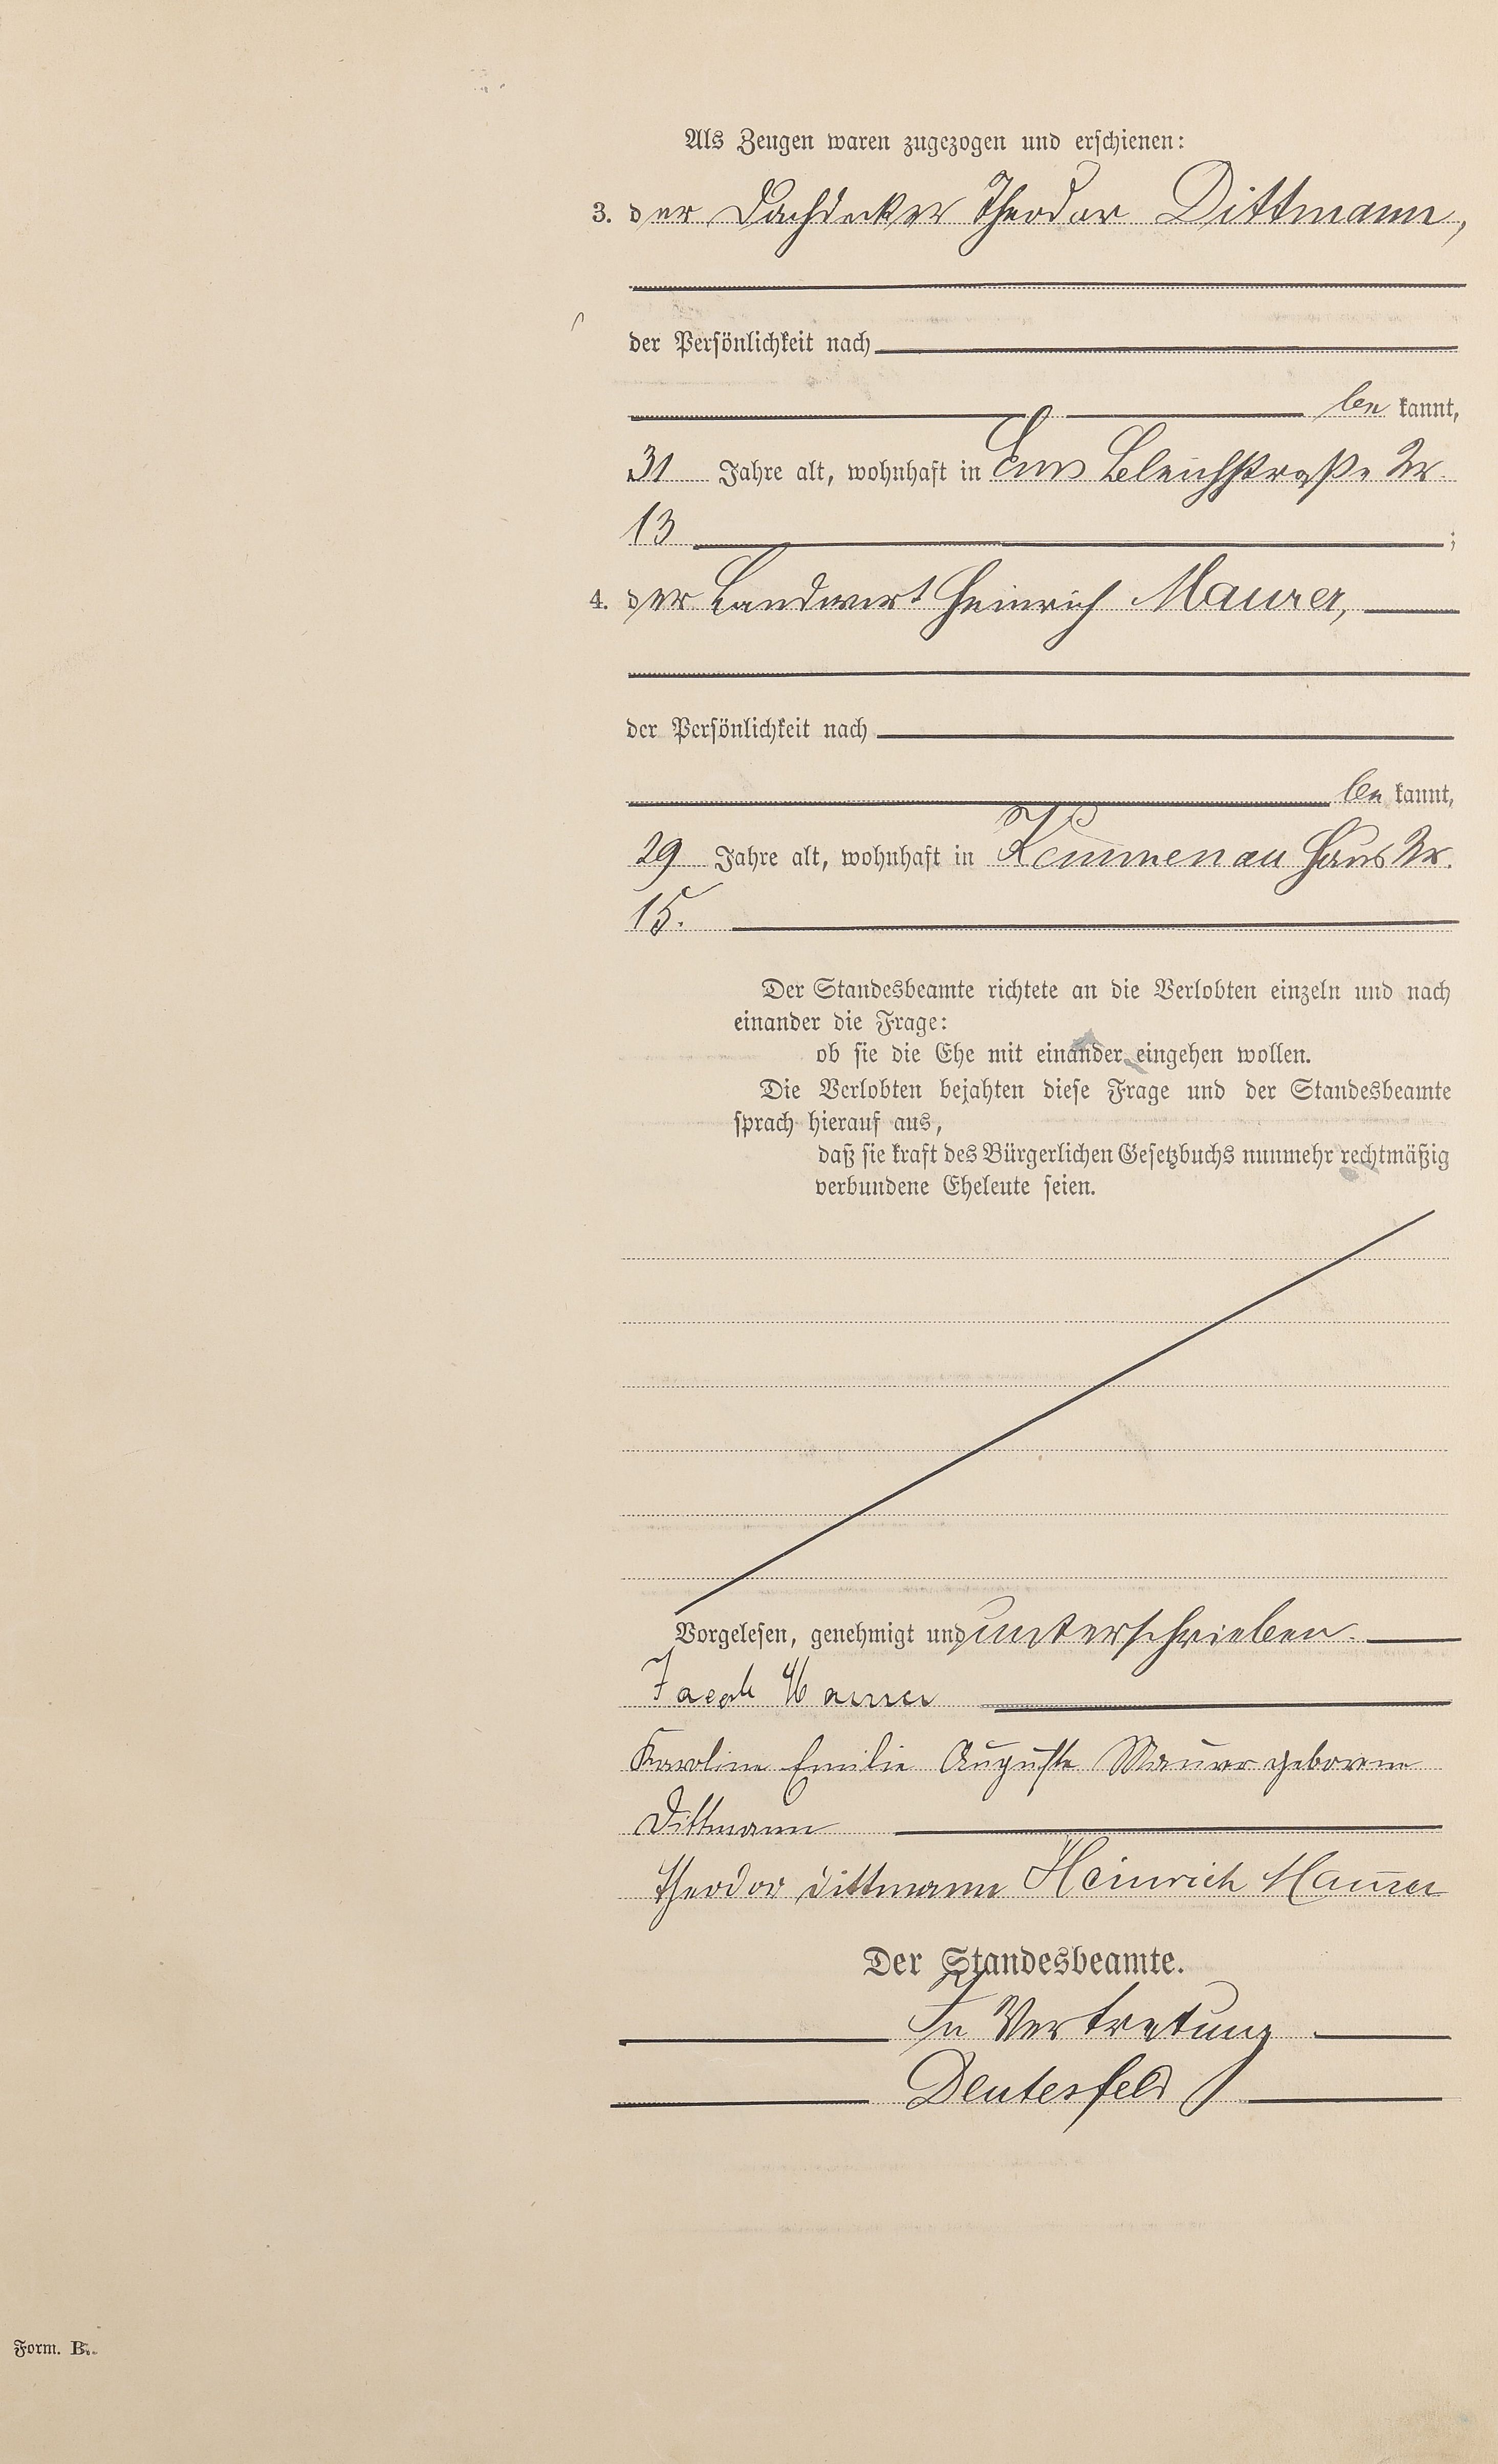 Als Zeugen waren zugezogen und erschienen:
3. der Dachdecker Theodor Dittmann,
der Persönlichkeit nach
be kannt,
31 Jahre alt, wohnhaft in Ems Bleichstraße Nr.
13 ;
4. der Landwirt Heinrich Maurer,
der Persönlichkeit nach
be kannt,
29 Jahre alt, wohnhaft in Kemmenau Haus Nr.
15.
Der Standesbeamte richtete an die Verlobten einzeln und nach
einander die Frage:
ob sie die Ehe mit einander eingehen wollen.
Die Verlobten bejahten diese Frage und der Standesbeamte
sprach hierauf aus,
daß sie kraft des Bürgerlichen Gesetzbuchs nunmehr rechtmäßig
verbundene Eheleute seien.
Vorgelesen, genehmigt und unterschrieben.
Jacob Maurer
Karoline Emilie Auguste Maurer geborene
Dittmann
Theodor Dittmann Heinrich Maurer
Der Standesbeamte.
In Vertretung
Deutesfeld
Form. B.